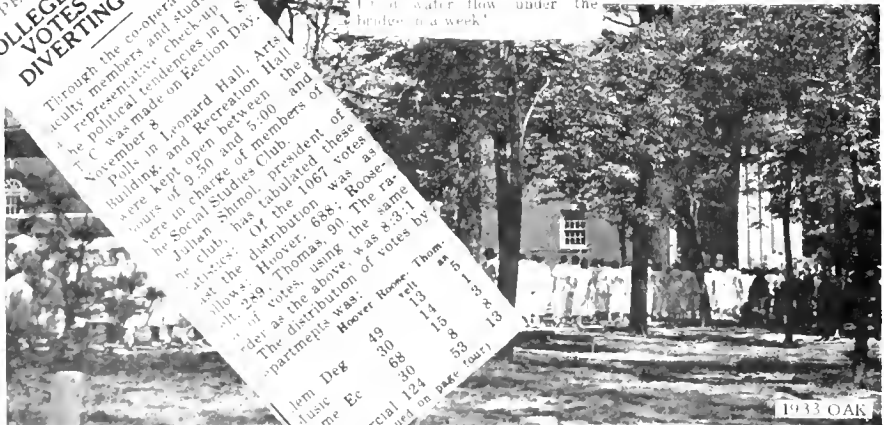 COLLEGE
VOTES
DIVERTING
Through the co-opera
culty members and stud
representative check-up
he political tendencies in I S
T C was made on Eection Day,
November 8
Polls in Leonard Hall, Arts
Building, and Recreation Hall
were kept open between the
hours of 9:30 and 5:00 and
were in charge of members of
he Social Studies Club.
Julian Shinol, president of
he club, has tabulated these
atistics: Of the 1067 votes
ast the distribution was as
ollows: Hoover, 688; Roose-
elt, 289, Thomas, 90. The ra-
of votes, using the same
rder as the above, was 8:3:1
The distribution of votes by
partments was:
Hoover Roose- Thom-
velt as
lem Deg 49 13 5
Music 30 14 1
me Ec 68 15 3
30 8 8
rcial 124 53 13
ued on page four)
water flow under the
bridge in a week!
1933 OAK